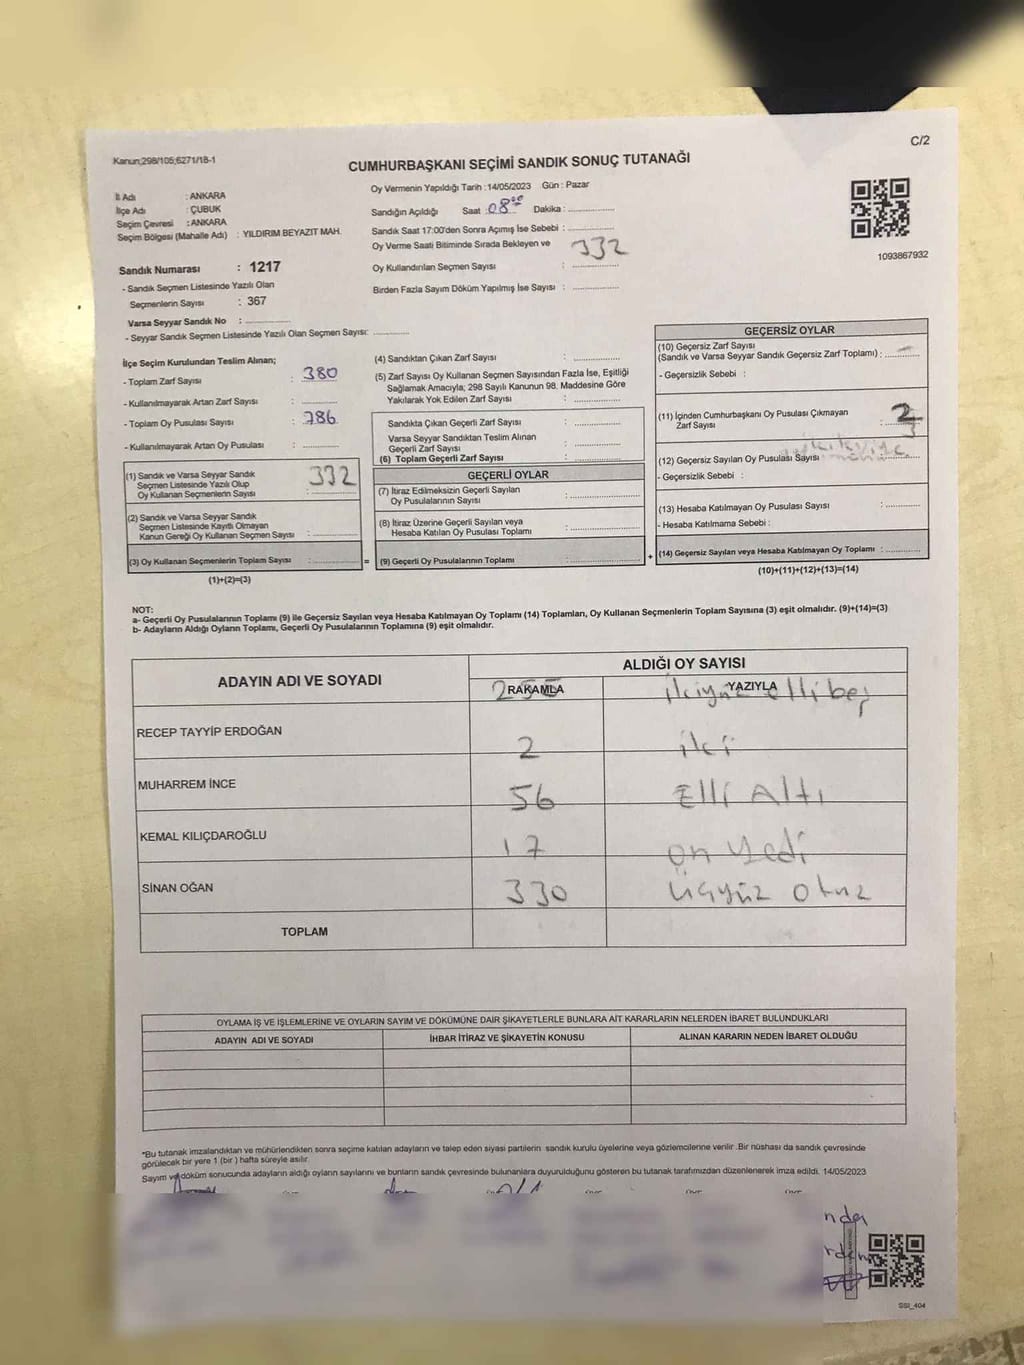 C/2
Kanun;298/105;6271/18-1
CUMHURBAŞKANI SEÇİMİ SANDIK SONUÇ TUTANAĞI
İl Adı : ANKARA
İlçe Adı : ÇUBUK
Seçim Çevresi : ANKARA
Seçim Bölgesi (Mahalle Adı) : YILDIRIM BEYAZIT MAH.
Oy Vermenin Yapıldığı Tarih :14/05/2023 Gün : Pazar
Sandığın Açıldığı Saat : 08 00 Dakika :
Sandık Saat 17:00'den Sonra Açımış İse Sebebi :
Oy Verme Saati Bitiminde Sırada Bekleyen ve 332
Oy Kullandırılan Seçmen Sayısı :
Birden Fazla Sayım Döküm Yapılmış İse Sayısı :
1093867932
Sandık Numarası : 1217
- Sandık Seçmen Listesinde Yazılı Olan
Seçmenlerin Sayısı : 367
Varsa Seyyar Sandık No :
- Seyyar Sandık Seçmen Listesinde Yazılı Olan Seçmen Sayısı:
İlçe Seçim Kurulundan Teslim Alınan;
- Toplam Zarf Sayısı : 380
- Kullanılmayarak Artan Zarf Sayısı :
- Toplam Oy Pusulası Sayısı : 386
- Kullanılmayarak Artan Oy Pusulası :
(1) Sandık ve Varsa Seyyar Sandık
Seçmen Listesinde Yazılı Olup
Oy Kullanan Seçmenlerin Sayısı : 332
(2) Sandık ve Varsa Seyyar Sandık
Seçmen Listesinde Kayıtlı Olmayan
Kanun Gereği Oy Kullanan Seçmen Sayısı :
(3) Oy Kullanan Seçmenlerin Toplam Sayısı : =
(1)+(2)=(3)
(4) Sandıktan Çıkan Zarf Sayısı :
(5) Zarf Sayısı Oy Kullanan Seçmen Sayısından Fazla İse, Eşitliği
Sağlamak Amacıyla; 298 Sayılı Kanunun 98. Maddesine Göre
Yakılarak Yok Edilen Zarf Sayısı :
Sandıkta Çıkan Geçerli Zarf Sayısı :
Varsa Seyyar Sandıktan Teslim Alınan
Geçerli Zarf Sayısı :
(6) Toplam Geçerli Zarf Sayısı :
GEÇERLİ OYLAR
(7) İtiraz Edilmeksizin Geçerli Sayılan
Oy Pusulalarının Sayısı :
(8) İtiraz Üzerine Geçerli Sayılan veya
Hesaba Katılan Oy Pusulası Toplamı :
(9) Geçerli Oy Pusulalarının Toplamı : +
GEÇERSİZ OYLAR
(10) Geçersiz Zarf Sayısı
(Sandık ve Varsa Seyyar Sandık Geçersiz Zarf Toplamı) :
- Geçersizlik Sebebi :
(11) İçinden Cumhurbaşkanı Oy Pusulası Çıkmayan
Zarf Sayısı : 2
(12) Geçersiz Sayılan Oy Pusulası Sayısı :
- Geçersizlik Sebebi :
(13) Hesaba Katılmayan Oy Pusulası Sayısı :
- Hesaba Katılmama Sebebi :
(14) Geçersiz Sayılan veya Hesaba Katılmayan Oy Toplamı :
(10)+(11)+(12)+(13)=(14)
NOT:
a- Geçerli Oy Pusulalarının Toplamı (9) ile Geçersiz Sayılan veya Hesaba Katılmayan Oy Toplamı (14) Toplamları, Oy Kullanan Seçmenlerin Toplam Sayısına (3) eşit olmalıdır. (9)+(14)=(3)
b- Adayların Aldığı Oyların Toplamı, Geçerli Oy Pusulalarının Toplamına (9) eşit olmalıdır.
ADAYIN ADI VE SOYADI
ALDIĞI OY SAYISI
RAKAMLA YAZIYLA
255 ikiyüz elli beş
RECEP TAYYİP ERDOĞAN
2 iki
MUHARREM İNCE
56 Elli Altı
KEMAL KILIÇDAROĞLU
17 on yedi
SİNAN OĞAN
330 üçyüz otuz
TOPLAM
OYLAMA İŞ VE İŞLEMLERİNE VE OYLARIN SAYIM VE DÖKÜMÜNE DAİR ŞİKAYETLERLE BUNLARA AİT KARARLARIN NELERDEN İBARET BULUNDUKLARI
ADAYIN ADI VE SOYADI İHBAR İTİRAZ VE ŞİKAYETİN KONUSU ALINAN KARARIN NEDEN İBARET OLDUĞU
*Bu tutanak imzalandıktan ve mühürlendikten sonra seçime katılan adayların ve talep eden siyasi partilerin sandık kurulu üyelerine veya gözlemcilerine verilir .Bir nüshası da sandık çevresinde
görülecek bir yere 1 (bir ) hafta süreyle asılır.
Sayım ve döküm sonucunda adayların aldığı oyların sayılarını ve bunların sandık çevresinde bulunanlara duyurulduğunu gösteren bu tutanak tarafımızdan düzenlenerek imza edildi. 14/05/2023
SSI_404